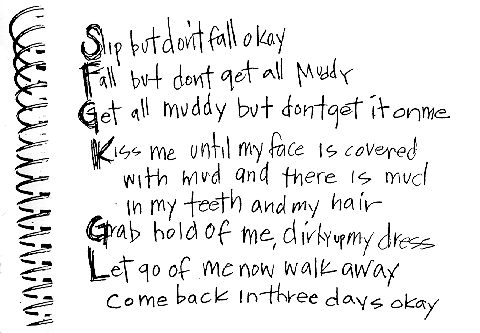 Slip but don't fall okay
Fall but dont get all Muddy
Get all muddy but dont get it on me
Kiss me until my face is covered
with mud and there is mud
in my teeth and my hair
Grab hold of me, dirty up my dress
Let go of me now walk away
Come back in three days okay